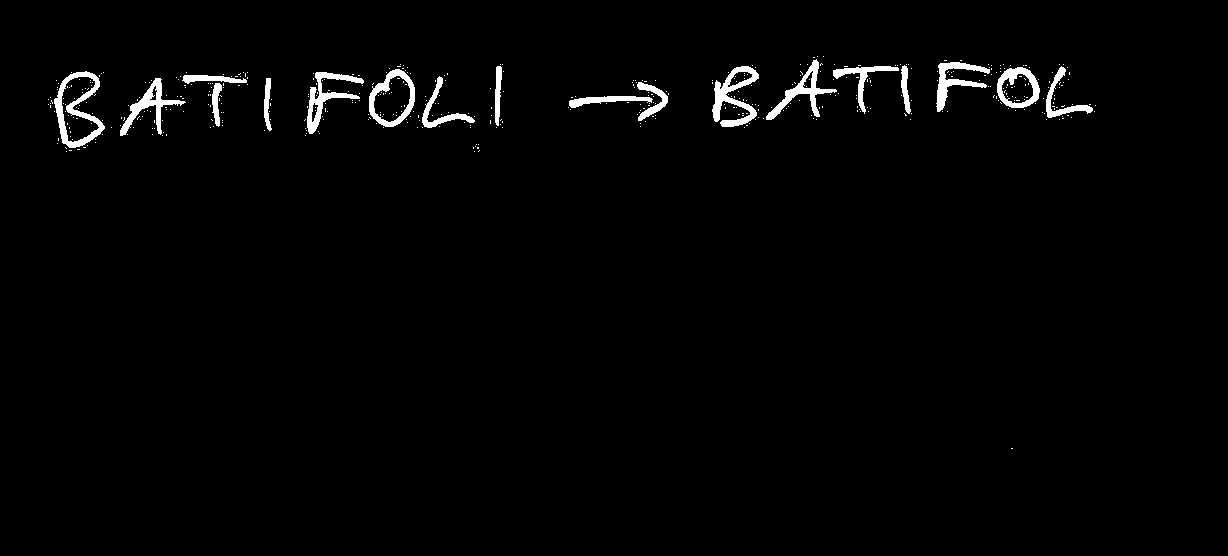 BATIFOLI → BATIFOL